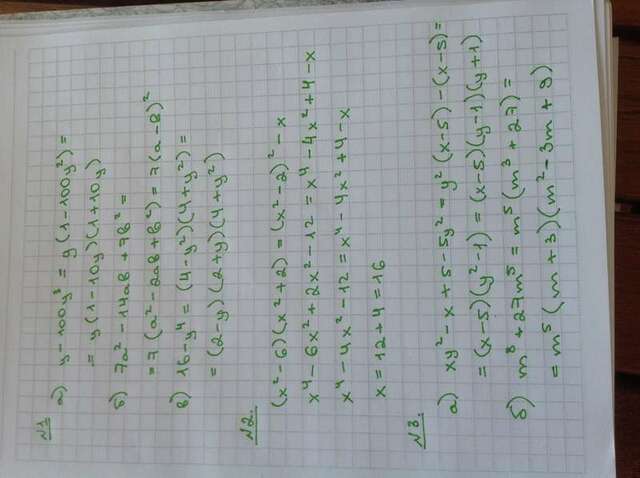 №1.
а) y - 100y³ = y(1 - 100y²) =
= y(1 - 10y)(1 + 10y)
б) 7a² - 14ab + 7b² =
= 7(a² - 2ab + b²) = 7(a - b)²
в) 16 - y⁴ = (4 - y²)(4 + y²) =
= (2 - y)(2 + y)(4 + y²)
№2.
(x² - 6)(x² + 2) = (x² - 2)² - x
x⁴ - 6x² + 2x² - 12 = x⁴ - 4x² + 4 - x
x⁴ - 4x² - 12 = x⁴ - 4x² + 4 - x
x = 12 + 4 = 16
№3.
а) xy² - x + 5 - 5y² = y²(x - 5) - (x - 5) =
= (x - 5)(y² - 1) = (x - 5)(y - 1)(y + 1)
б) m⁸ + 27m⁵ = m⁵(m³ + 27) =
= m⁵(m + 3)(m² - 3m + 9)